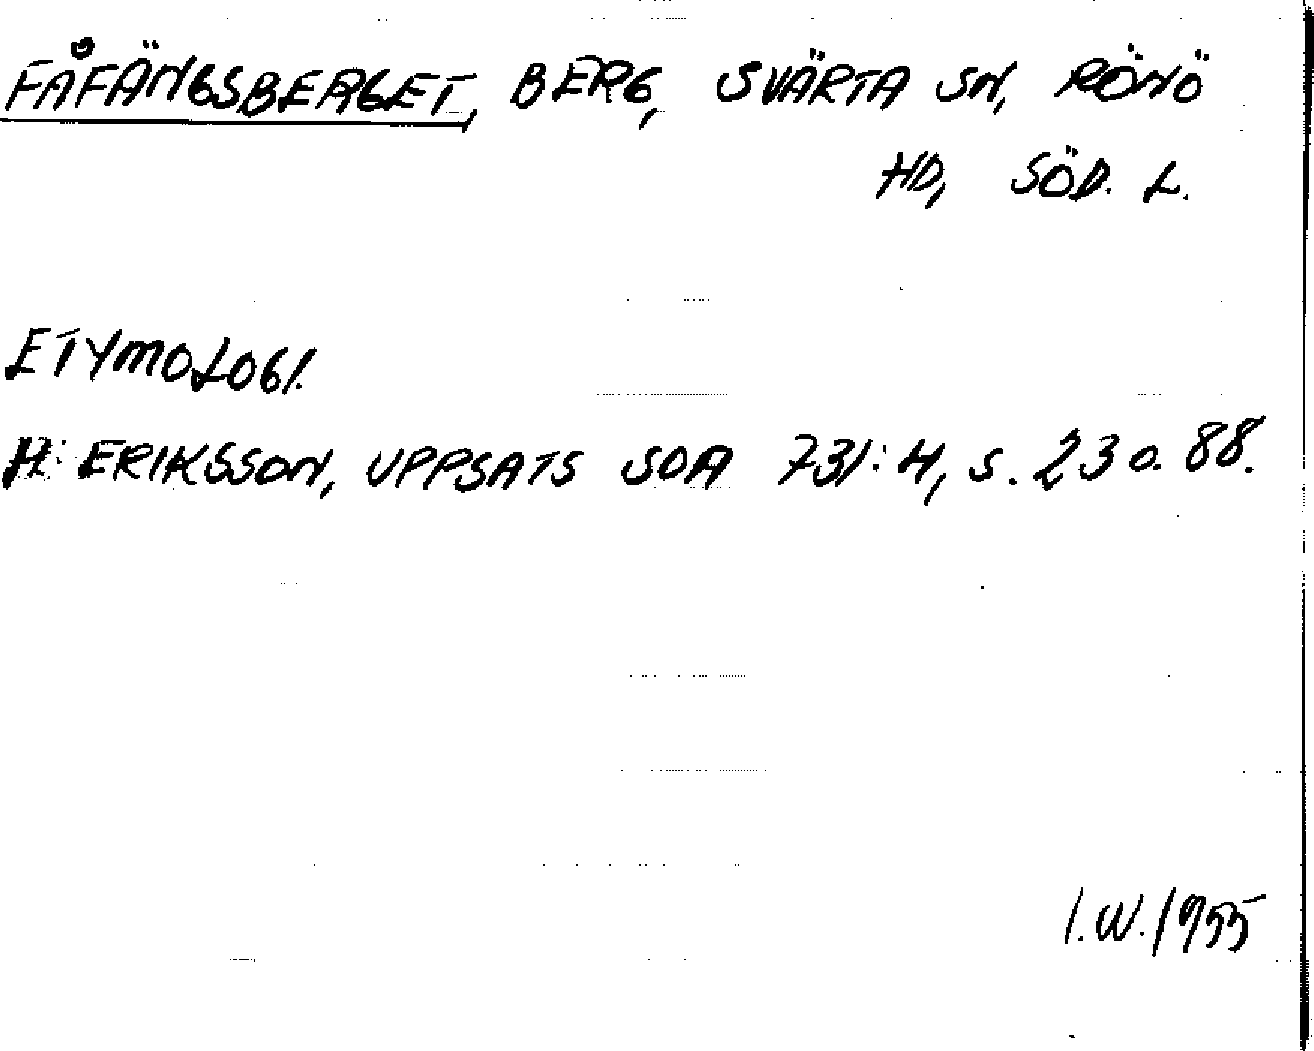 FÅFÄNGSBERGET, BERG, SVÄRTA SN, RÖNÖ
HD, SÖD. L.
ETYMOLOGI.
H: ERIKSSON, UPPSATS SOA 731:4, s. 23 o. 88.
I.W. 1955